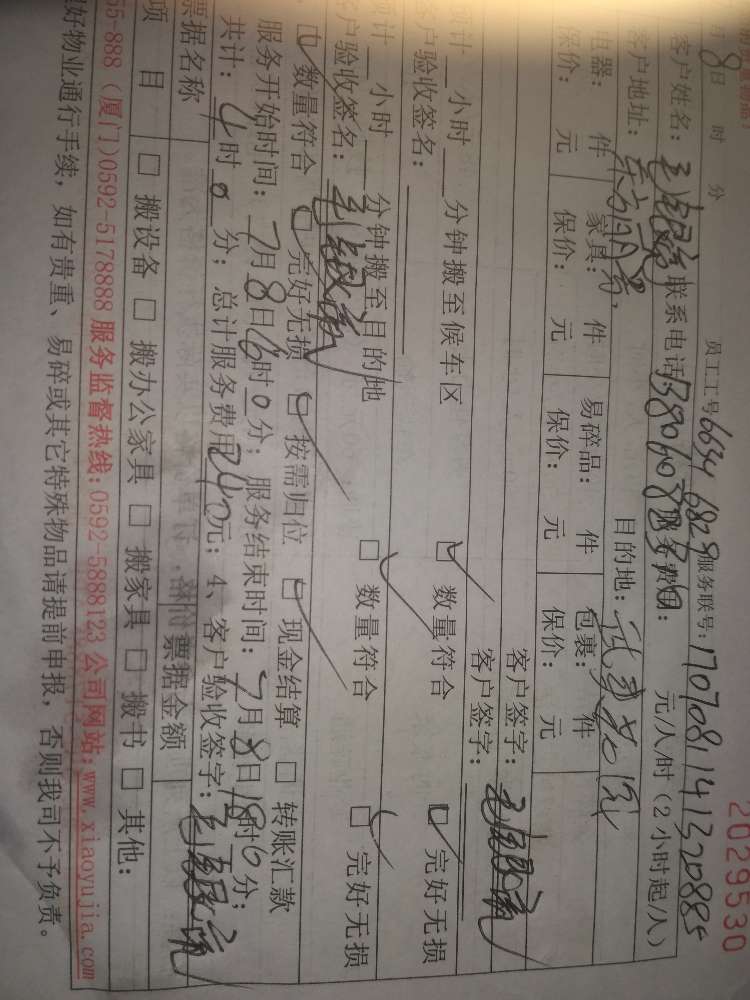 2029530
月8日 时 分 员工工号6634 6828 服务联号:1707081141320885
客户姓名: 联系电话: 服务费用: 元/人/时（2小时起/人）
客户地址: 目的地:
电器: 件 家具: 件 易碎品: 件 包裹: 件
保价: 元 保价: 元 保价: 元 保价: 元
客户签字:
客户签字:
预计__小时__分钟搬至候车区 □ 数量符合 □ 完好无损
客户验收签名:
预计__小时__分钟搬至目的地 □ 数量符合 □ 完好无损
客户验收签名:
□ 数量符合 □ 完好无损 □ 按需归位 □ 现金结算 □ 转账汇款
服务开始时间: 7月8日 时0分; 服务结束时间: 7月8日18时0分;
共计: 4时0分; 总计服务费用240元; 4、客户验收签字:
票据名称 票据金额
项 目 □ 搬设备 □ 搬办公家具 □ 搬家具 □ 搬书 □ 其他:
55-888（厦门)0592-5178888 服务监督热线:0592-5888123 公司网站:www.xiaoyujia.com
好物业通行手续, 如有贵重、易碎或其它特殊物品请提前申报, 否则我司不予负责。